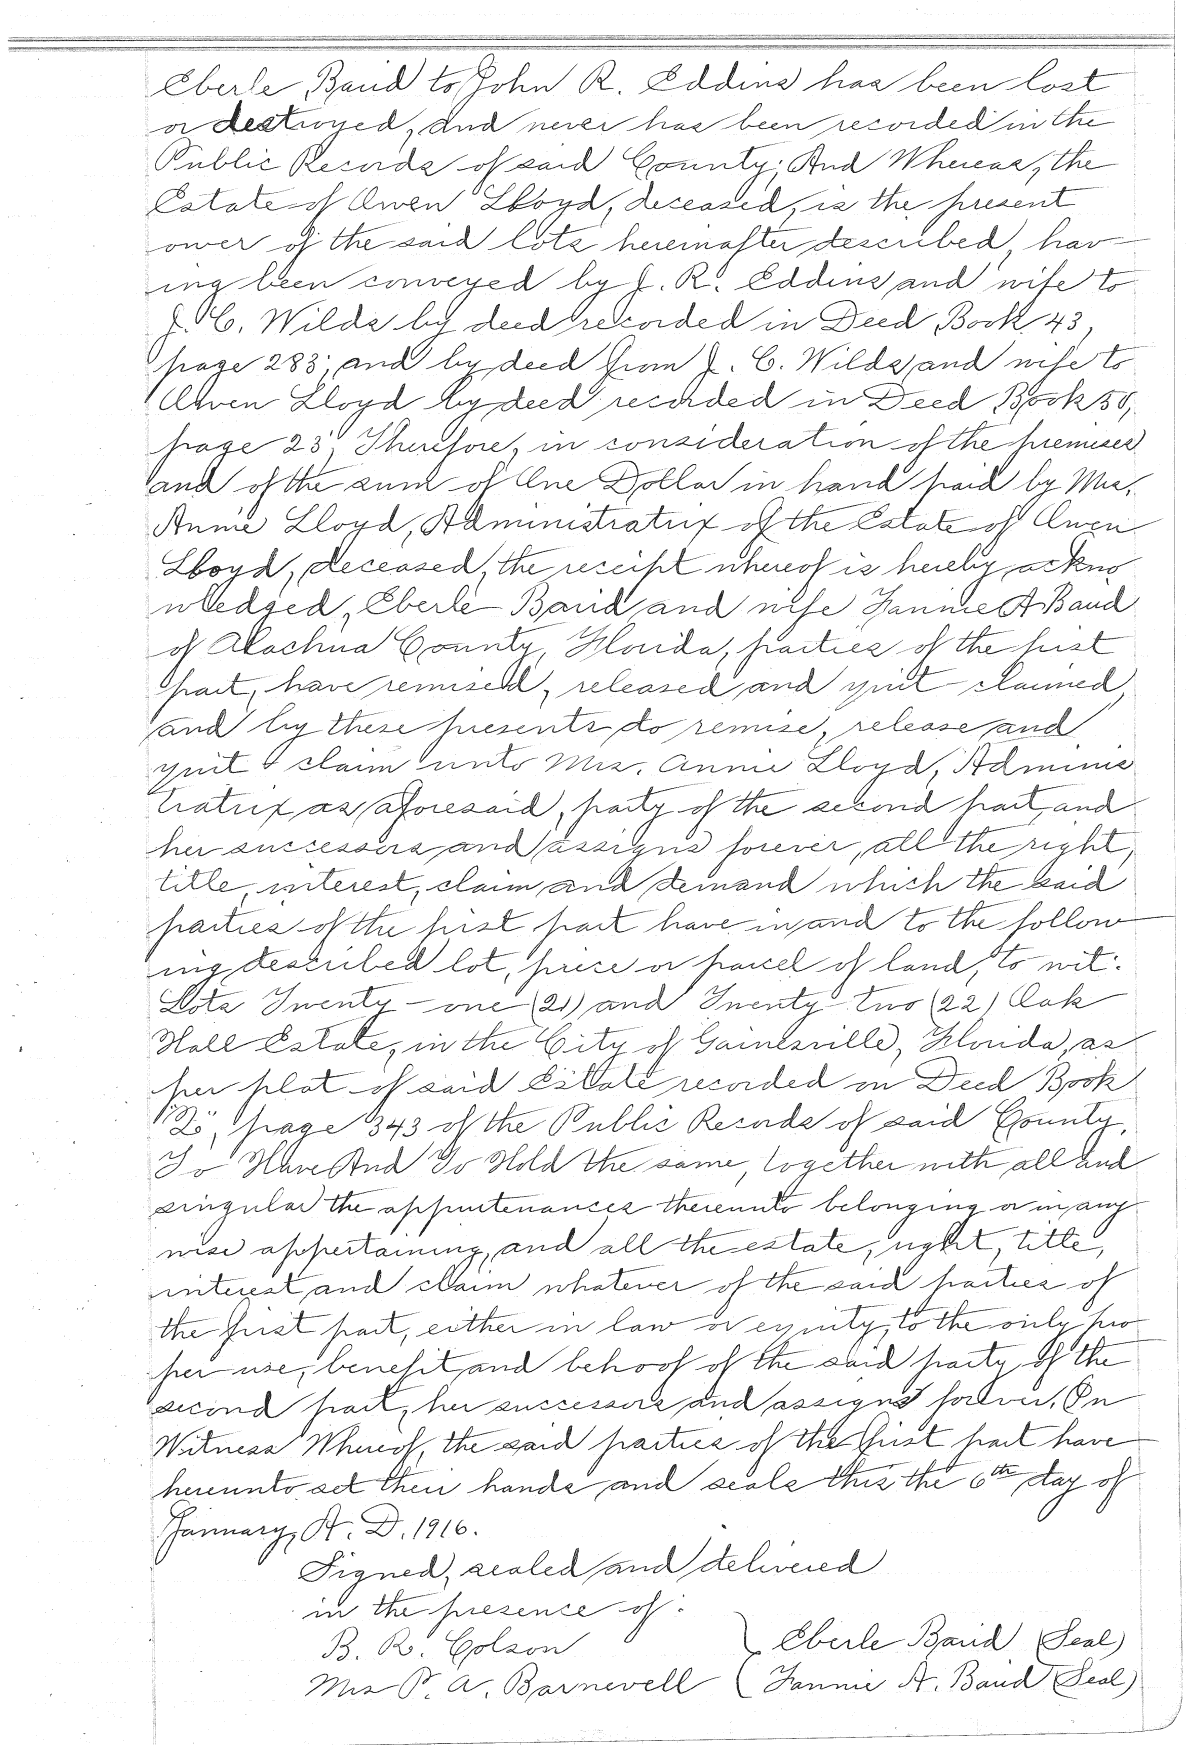 Eberle Baird to John R. Eddins has been lost
or destroyed, and never has been recorded in the
Public Records of said County; And Whereas, the
Estate of Owen Lloyd, deceased, is the present
ower of the said lots hereinafter described, hav-
ing been conveyed by J. R. Eddins and wife to
J. C. Wilds by deed recorded in Deed Book 43,
page 283; and by deed from J. C. Wilds and wife to
Owen Lloyd by deed recorded in Deed Book 50,
page 23; Therefore, in consideration of the premises
and of the sum of One Dollar in hand paid by Mrs.
Annie Lloyd, Administratrix of the Estate of Owen
Lloyd, deceased, the receipt whereof is hereby ackno
wledged, Eberle Baird and wife Fannie A Baird
of Alachua County, Florida, parties of the first
part, have remised, released and quit-claimed,
and by these presents do remise, release and
quit claim unto Mrs. Annie Lloyd, Adminis
tratrix as aforesaid, party of the second part, and
her successors and assigns forever, all the right,
title, interest, claim and demand which the said
parties of the first part have in and to the follow-
ing described lot, piece or parcel of land, to wit:
Lots Twenty-one (21) and Twenty-two (22) Oak
Hall Estate, in the City of Gainesville, Florida, as
per plat of said Estate recorded on Deed Book
page 343 of the Public Records of said County.
To Have And To Hold the same, together with all and
singular the appurtenances thereunto belonging or in any
wise appertaining, and all the estate, right, title,
interest and claim whatever of the said parties of
the first part, either in law or equity, to the only pro
per use, benefit and behoof of the said party of the
second part, her successors and assigns forever. In
Witness Whereof, the said parties of the first part have
hereunto set their hands and seals this the 6th day of
January, A. D. 1916.
Signed, sealed and delivered
in the presence of:
B. R. Colson } Eberle Baird (Seal)
Mrs P. A. Barnevell ( Fannie A. Baird (Seal)